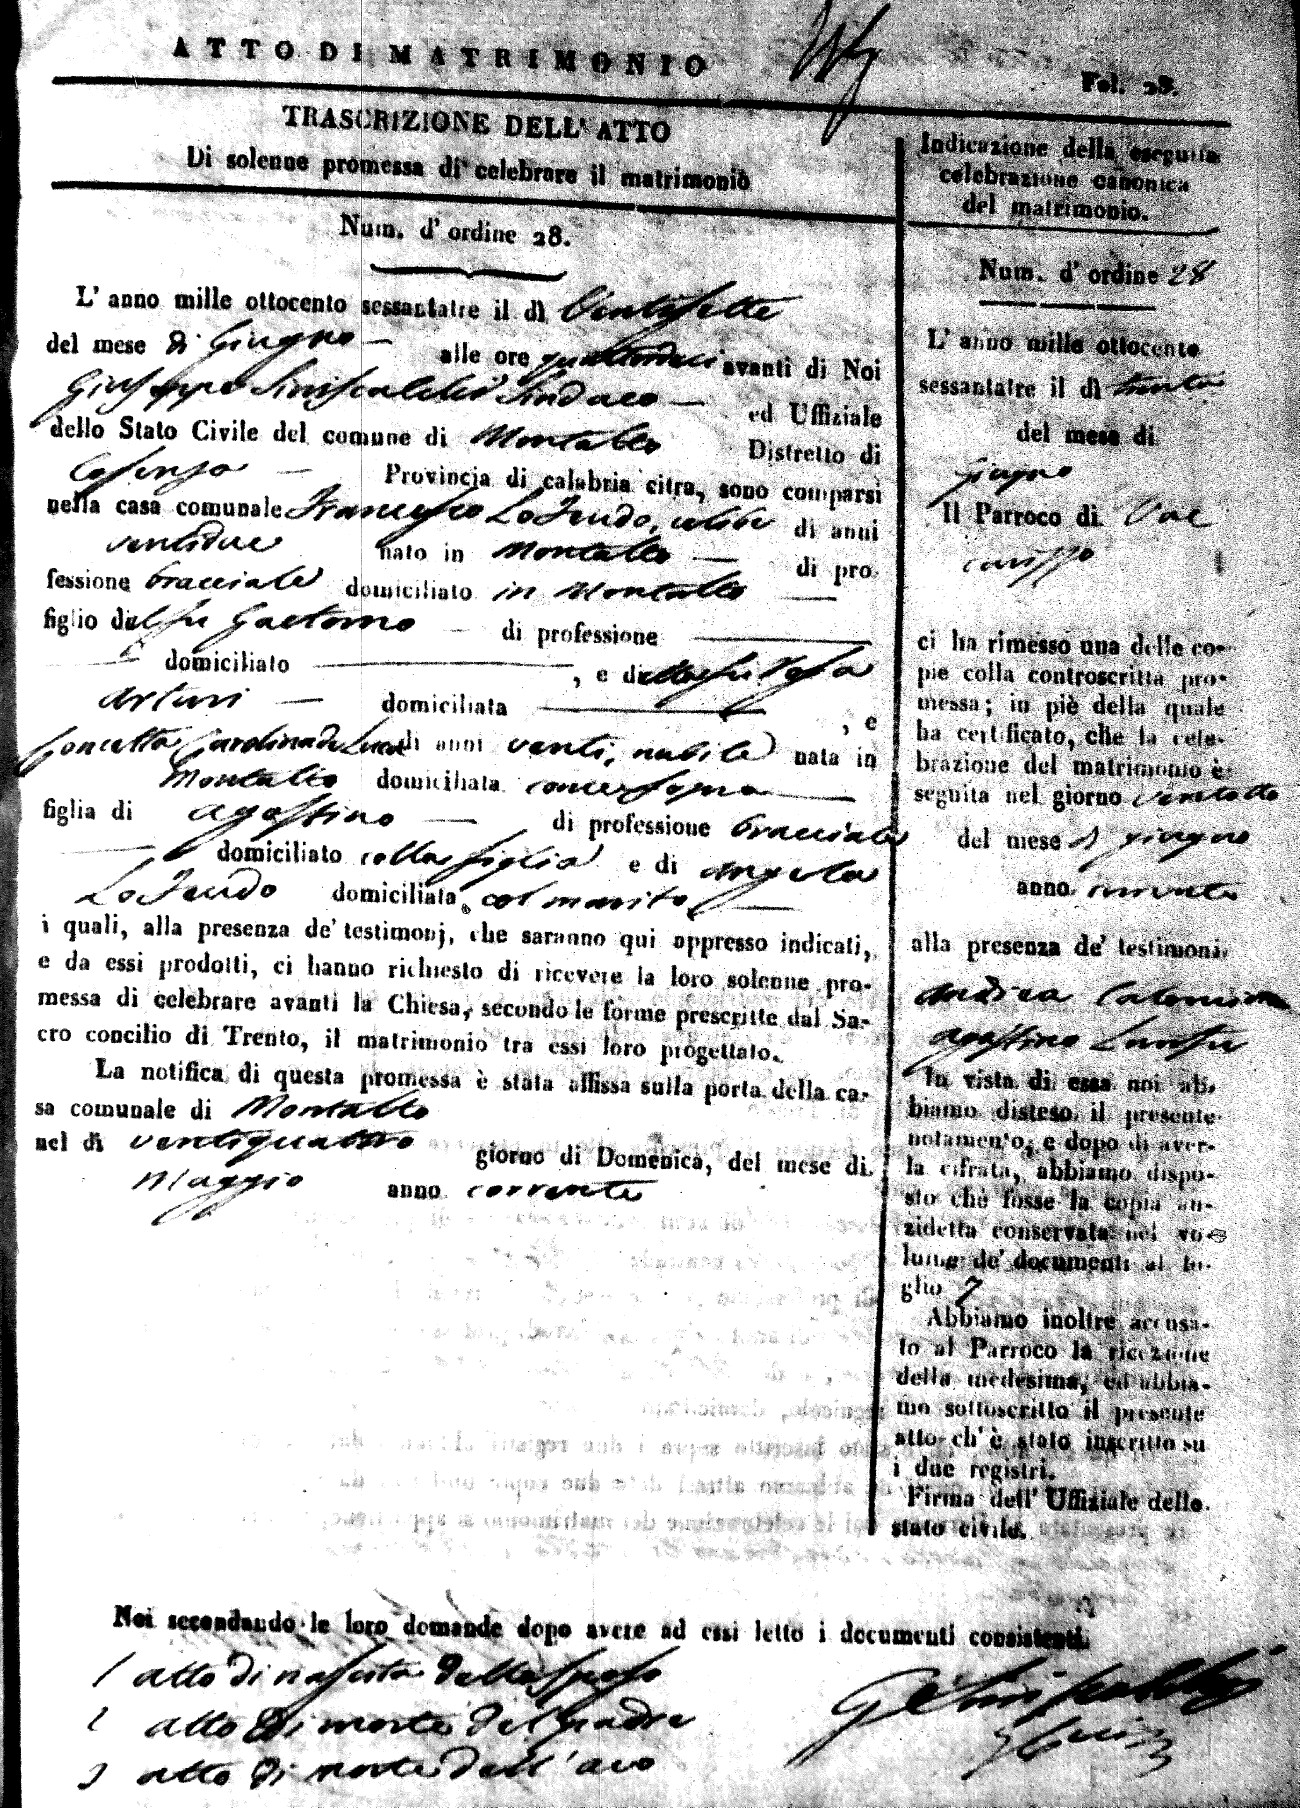 ATTO DI MATRIMONIO
Fol. 28.
TRASCRIZIONE DELL' ATTO
Di solenne promessa di celebrare il matrimonio
Num. d' ordine 28.
L' anno mille ottocento sessantatre il dì Ventisette
del mese di Giugno — alle ore quattordici avanti di Noi
Giuseppe Siniscalchi Sindaco — ed Uffiziale
dello Stato Civile del comune di Montalto Distretto di
Cosenza — Provincia di calabria citra, sono comparsi
nella casa comunale Francesco Lo Feudo, celibe di anni
ventidue nato in Montalto — di pro-
fessione bracciale domiciliato in Montalto —
figlio del fu Gaetano — di professione —
— domiciliato —, e della fu Rosa
Arturi — domiciliata —, e
Concetta Carolina de Luca di anni venti, nubile nata in
Montalto domiciliata come sopra —
figlia di Agostino — di professione bracciale
— domiciliato colla figlia e di Angela
Lo Feudo domiciliata col marito —
i quali, alla presenza de' testimonj, che saranno qui appresso indicati,
e da essi prodotti, ci hanno richiesto di ricevere la loro solenne pro-
messa di celebrare avanti la Chiesa, secondo le forme prescritte dal Sa-
cro concilio di Trento, il matrimonio tra essi loro progettato.
La notifica di questa promessa è stata affissa sulla porta della ca-
sa comunale di Montalto
nel dì ventiquattro giorno di Domenica, del mese di
Maggio anno corrente
Indicazione della eseguita
celebrazione canonica
del matrimonio.
Num. d' ordine 28
L' anno mille ottocento
sessantatre il dì trenta
del mese di
giugno
Il Parroco di Vac
carizzo
ci ha rimesso una delle co-
pie colla controscritta pro-
messa; in piè della quale
ha certificato, che la cele-
brazione del matrimonio è
seguita nel giorno
del mese di giugno
anno corrente
alla presenza de' testimoni
Andrea
Agostino
In vista di essa noi ab-
biamo disteso il presente
notamento, e dopo di aver-
la cifrata, abbiamo dispo-
sto che fosse la copia an-
zidetta conservata nel vo-
lume de' documenti al fo-
glio 7
Abbiamo inoltre accusa-
to al Parroco la ricezione
della medesima, ed abbia-
mo sottoscritto il presente
atto ch' è stato inscritto su
i due registri.
Firma dell' Uffiziale dello
stato civile.
Noi secondando le loro domande dopo avere ad essi letto i documenti consistenti
1 atto di nascita dello sposo
2 atto di morte del padre
3 atto di morte dell' avo
G Siniscalchi